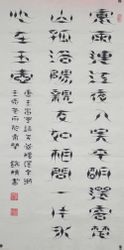 寒雨連江夜入吳平明送客楚
山孤洛陽親友如相問一片冰
心在玉壺
唐王昌齡詩芙蓉樓送辛漸